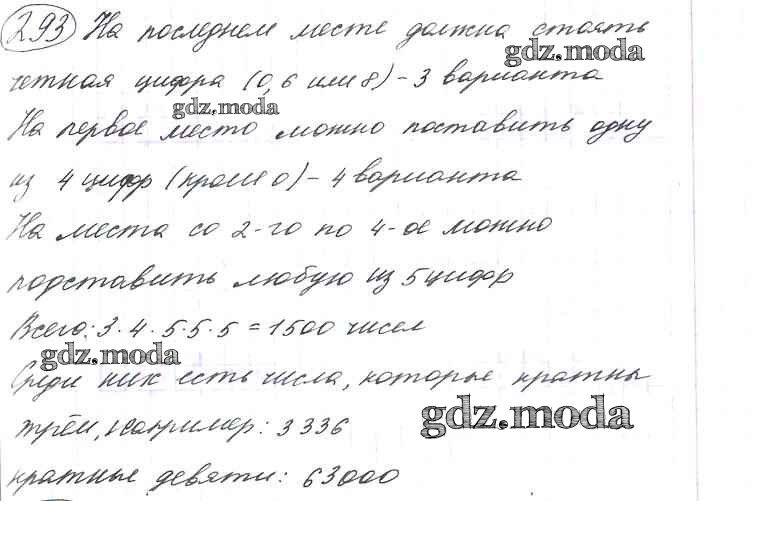 293 На последнем месте должна стоять
gdz.moda
четная цифра (0, 6 или 8) – 3 варианта
gdz.moda
На первое место можно поставить одну
из 4 цифр (кроме 0) – 4 варианта
На места со 2-го по 4-ое можно
подставить любую из 5 цифр
Всего: 3 · 4 · 5 · 5 · 5 = 1500 чисел
gdz.moda
Среди них есть числа, которые кратны
gdz.moda
трём, например: 3336
кратные девяти: 63000